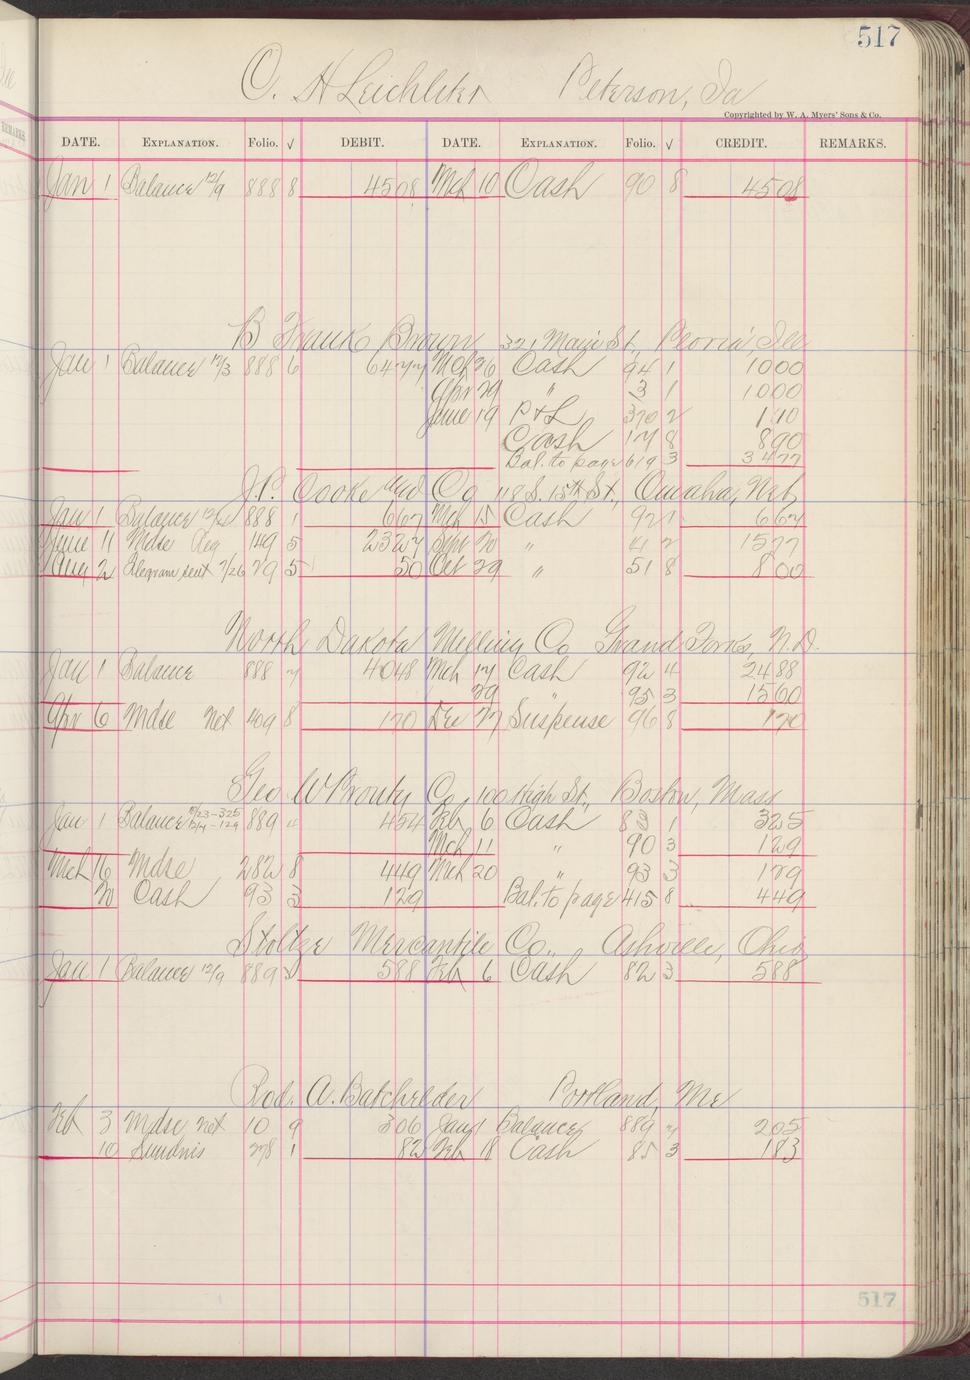 517
C. H Leichliter Peterson, Ia
Copyrighted by W. A. Myers' Sons & Co.
DATE. EXPLANATION. Folio. √ DEBIT. DATE. EXPLANATION. Folio. √ CREDIT. REMARKS.
Jan 1 Balance 12/9 888 8 4508 Mch 10 Cash 90 8 4508
B Frank Brown 321 Main St, Peoria, Ill
Jan 1 Balance 12/3 888 6 6477 Mch 26 Cash 94 1 1000
Apr 29 " 3 1 1000
June 19 P & L 370 2 110
Cash 17 8 890
Bal. to page 619 3 3477
J.P. Cooke and Co 118 S. 15th St., Omaha, Neb,
Jan 1 Balance 888 1 667 Mch 15 Cash 92 1 667
June 11 Mdse Reg 149 5 2327 Sept 20 " 41 2 1577
Aug 2 Telegram sent 7/26 79 5 50 Oct 29 " 51 8 800
North Dakota Milling Co Grand Forks, N.D.
Jan 1 Balance 888 7 4048 Mch 17 Cash 92 4 2488
29 " 95 3 1560
Apr 6 Mdse Net 409 8 170 Dec 27 Suspense 96 8 170
Geo W Prouty Co, 100 High St., Boston, Mass
Jan 1 Balance 11/23-325 12/4-129 889 " 454 Feb 6 Cash 83 1 325
Mch 11 " 90 3 129
Mch 16 Mdse 282 8 449 Mch 20 " 93 3 129
20 Cash 93 3 129 Bal. to page 415 8 449
Stoltze Mercantile Co., Ashville, Ohio,
Jan 1 Balance 12/9 889 588 Feb 6 Cash 82 3 588
Rod. A. Batchelder Portland, Me
Feb 3 Mdse net 10 9 306 Jan 1 Balance 889 7 205
10 Sundries 278 1 82 Feb 18 Cash 85 3 183
517